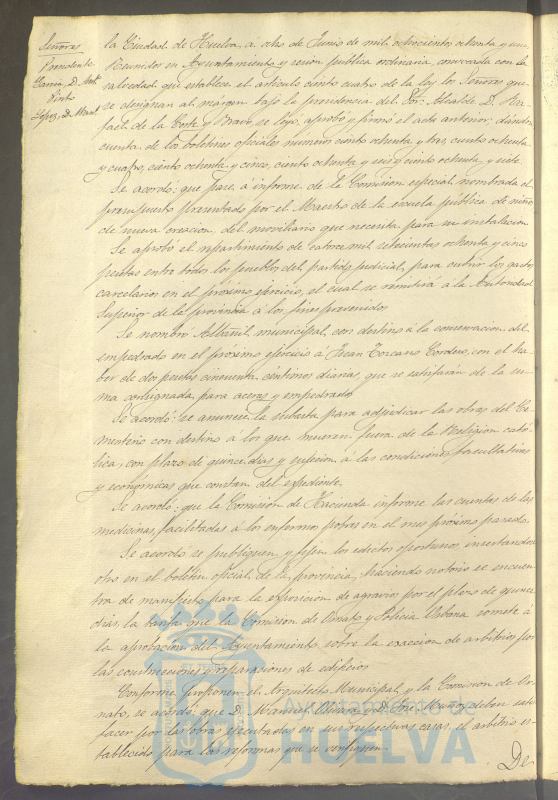 Señores
Presidente
Garcia, D. Antº
Pinto
Lopez, D. Manl
la Ciudad de Huelva á ocho de Junio de mil ochocientos ochenta y uno,
Reunidos en Ayuntamiento y sesion pública ordinaria, convocada con la
salvedad que establece el artículo ciento cuatro de la ley los Señores que
se designan al margen bajo la presidencia del Sor. Alcalde D. Ra-
fael de la Corte y Bravo se leyó, aprobó y firmó el acta anterior; dándose
cuenta de los boletines oficiales números ciento ochenta y tres, ciento ochenta
y cuatro, ciento ochenta y cinco, ciento ochenta y seis y ciento ochenta y siete.
Se acordó: que pase á informe de la Comision especial nombrada el
presupuesto presentado por el Maestro de la escuela pública de niños
de nueva creacion, del moviliario que necesita para su instalacion
Se aprobó el repartimiento de catorce mil setecientas ochenta y cinco
pesetas entre todos los pueblos del partido judicial, para cubrir los gastos
carcelarios en el próximo ejercicio, el cual se remitirá á la Autoridad
Superior de la provincia á los fines prevenidos
Se nombró Albañil municipal, con destino á la conservacion del
empedrado en el próximo ejercicio á Juan Toscano Cordero, con el ha-
ber de dos pesetas cincuenta céntimos diarias, que se satisfarán de la su-
ma consignada para aceras y empedrado
Se acordó: se anuncie la subasta para adjudicar las obras del Ce-
menterio con destino á los que mueren fuera de la Religion cató-
lica, con plazo de quince dias y sujecion á las condiciones facultativas
y económicas que constan del expediente.
Se acordó: que la Comision de Hacienda informe las cuentas de las
medicinas, facilitadas á los enfermos pobres en el mes próximo pasado.
Se acordó se publiquen y fijen los edictos oportunos insertandose
otro en el boletin oficial de la provincia, haciendo notorio se encuen-
tra de manifiesto para la exposicion de agravios por el plazo de quince
dias, la tarifa que la Comision de Ornato y Policia Urbana somete á
la aprobacion del Ayuntamiento, sobre la exaccion de arbitrios por
las construcciones y reparaciones de edificios
Conforme proponen el Arquitecto Municipal y la Comision de Or-
nato, se acordó: que D. Manuel Oliveira y D. José Muñoz, deben satis-
facer por las obras ejecutadas en sus respectivas casas, el arbitrio es-
tablecido para las reformas que se verifiquen
De
Ayuntamiento de
HUELVA